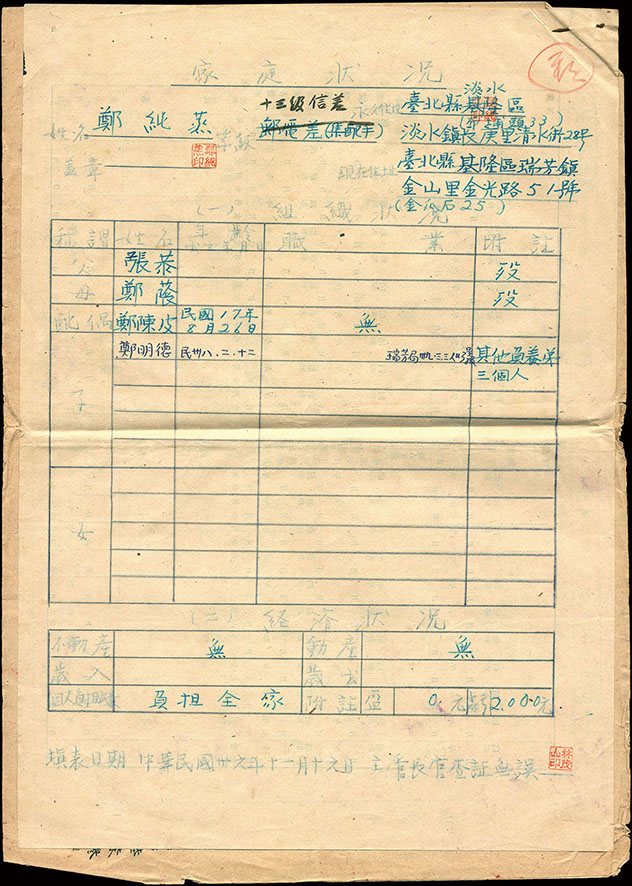 家庭狀況
姓名 鄭純蒸
蓋章
十三級信差
郵電差(集配手)
永久住址 臺北縣淡水基隆區
淡水鎮皮庚里清水街28号
現在住址 臺北縣基隆區瑞芳鎮
金山里金光路51號
(金瓜石25)
(一)組織狀況
稱謂 姓名 年齡 職業 附註
父 張恭 歿
母 鄭蔭 歿
配偶 鄭陳皮 民國17年8月26日 無
子 鄭明德 民卅八.二.十二 其他負養弟
三個人
女
(二)經濟狀況
不動產 無 動產 無
歲入 歲出
負担全家 附註
0元 2.000元
填表日期 中華民國卅六年十一月十六日 主管長官查証無誤